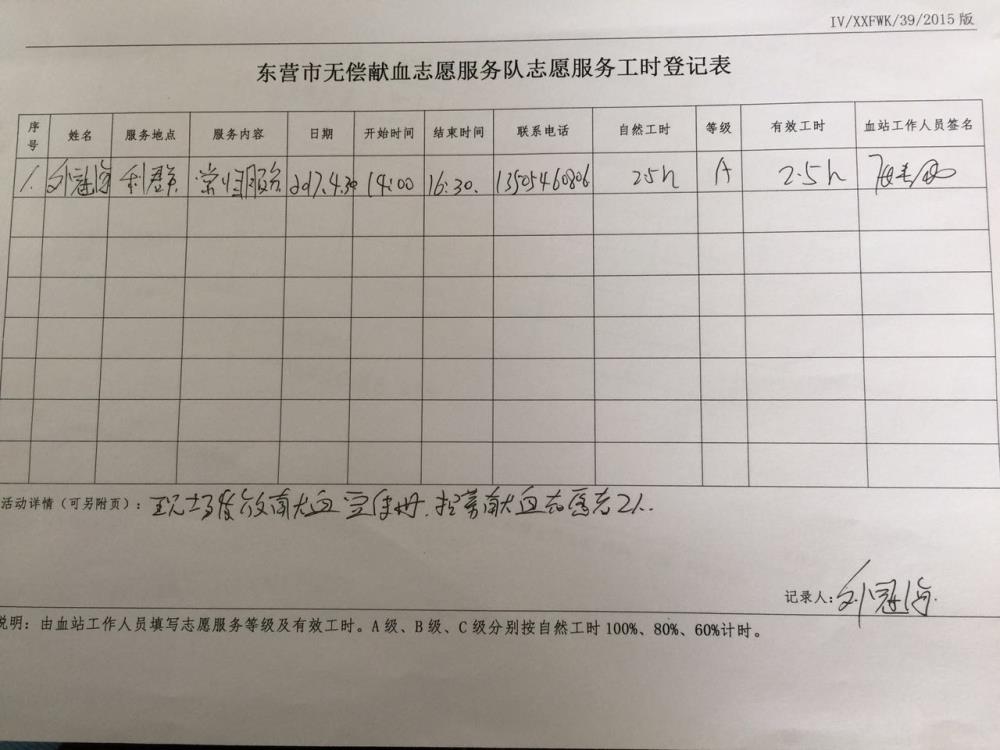 IV/XXFWK/39/2015版
东营市无偿献血志愿服务队志愿服务工时登记表
序号 姓名 服务地点 服务内容 日期 开始时间 结束时间 联系电话 自然工时 等级 有效工时 血站工作人员签名
1. 刘冠海 利群 常规服务 2017.4.30 14:00 16:30. 13505460806 2.5h A 2.5h
活动详情（可另附页）：现场发放献血宣传册.招募献血志愿者2人.
记录人:刘冠海
说明：由血站工作人员填写志愿服务等级及有效工时。A级、B级、C级分别按自然工时100%、80%、60%计时。